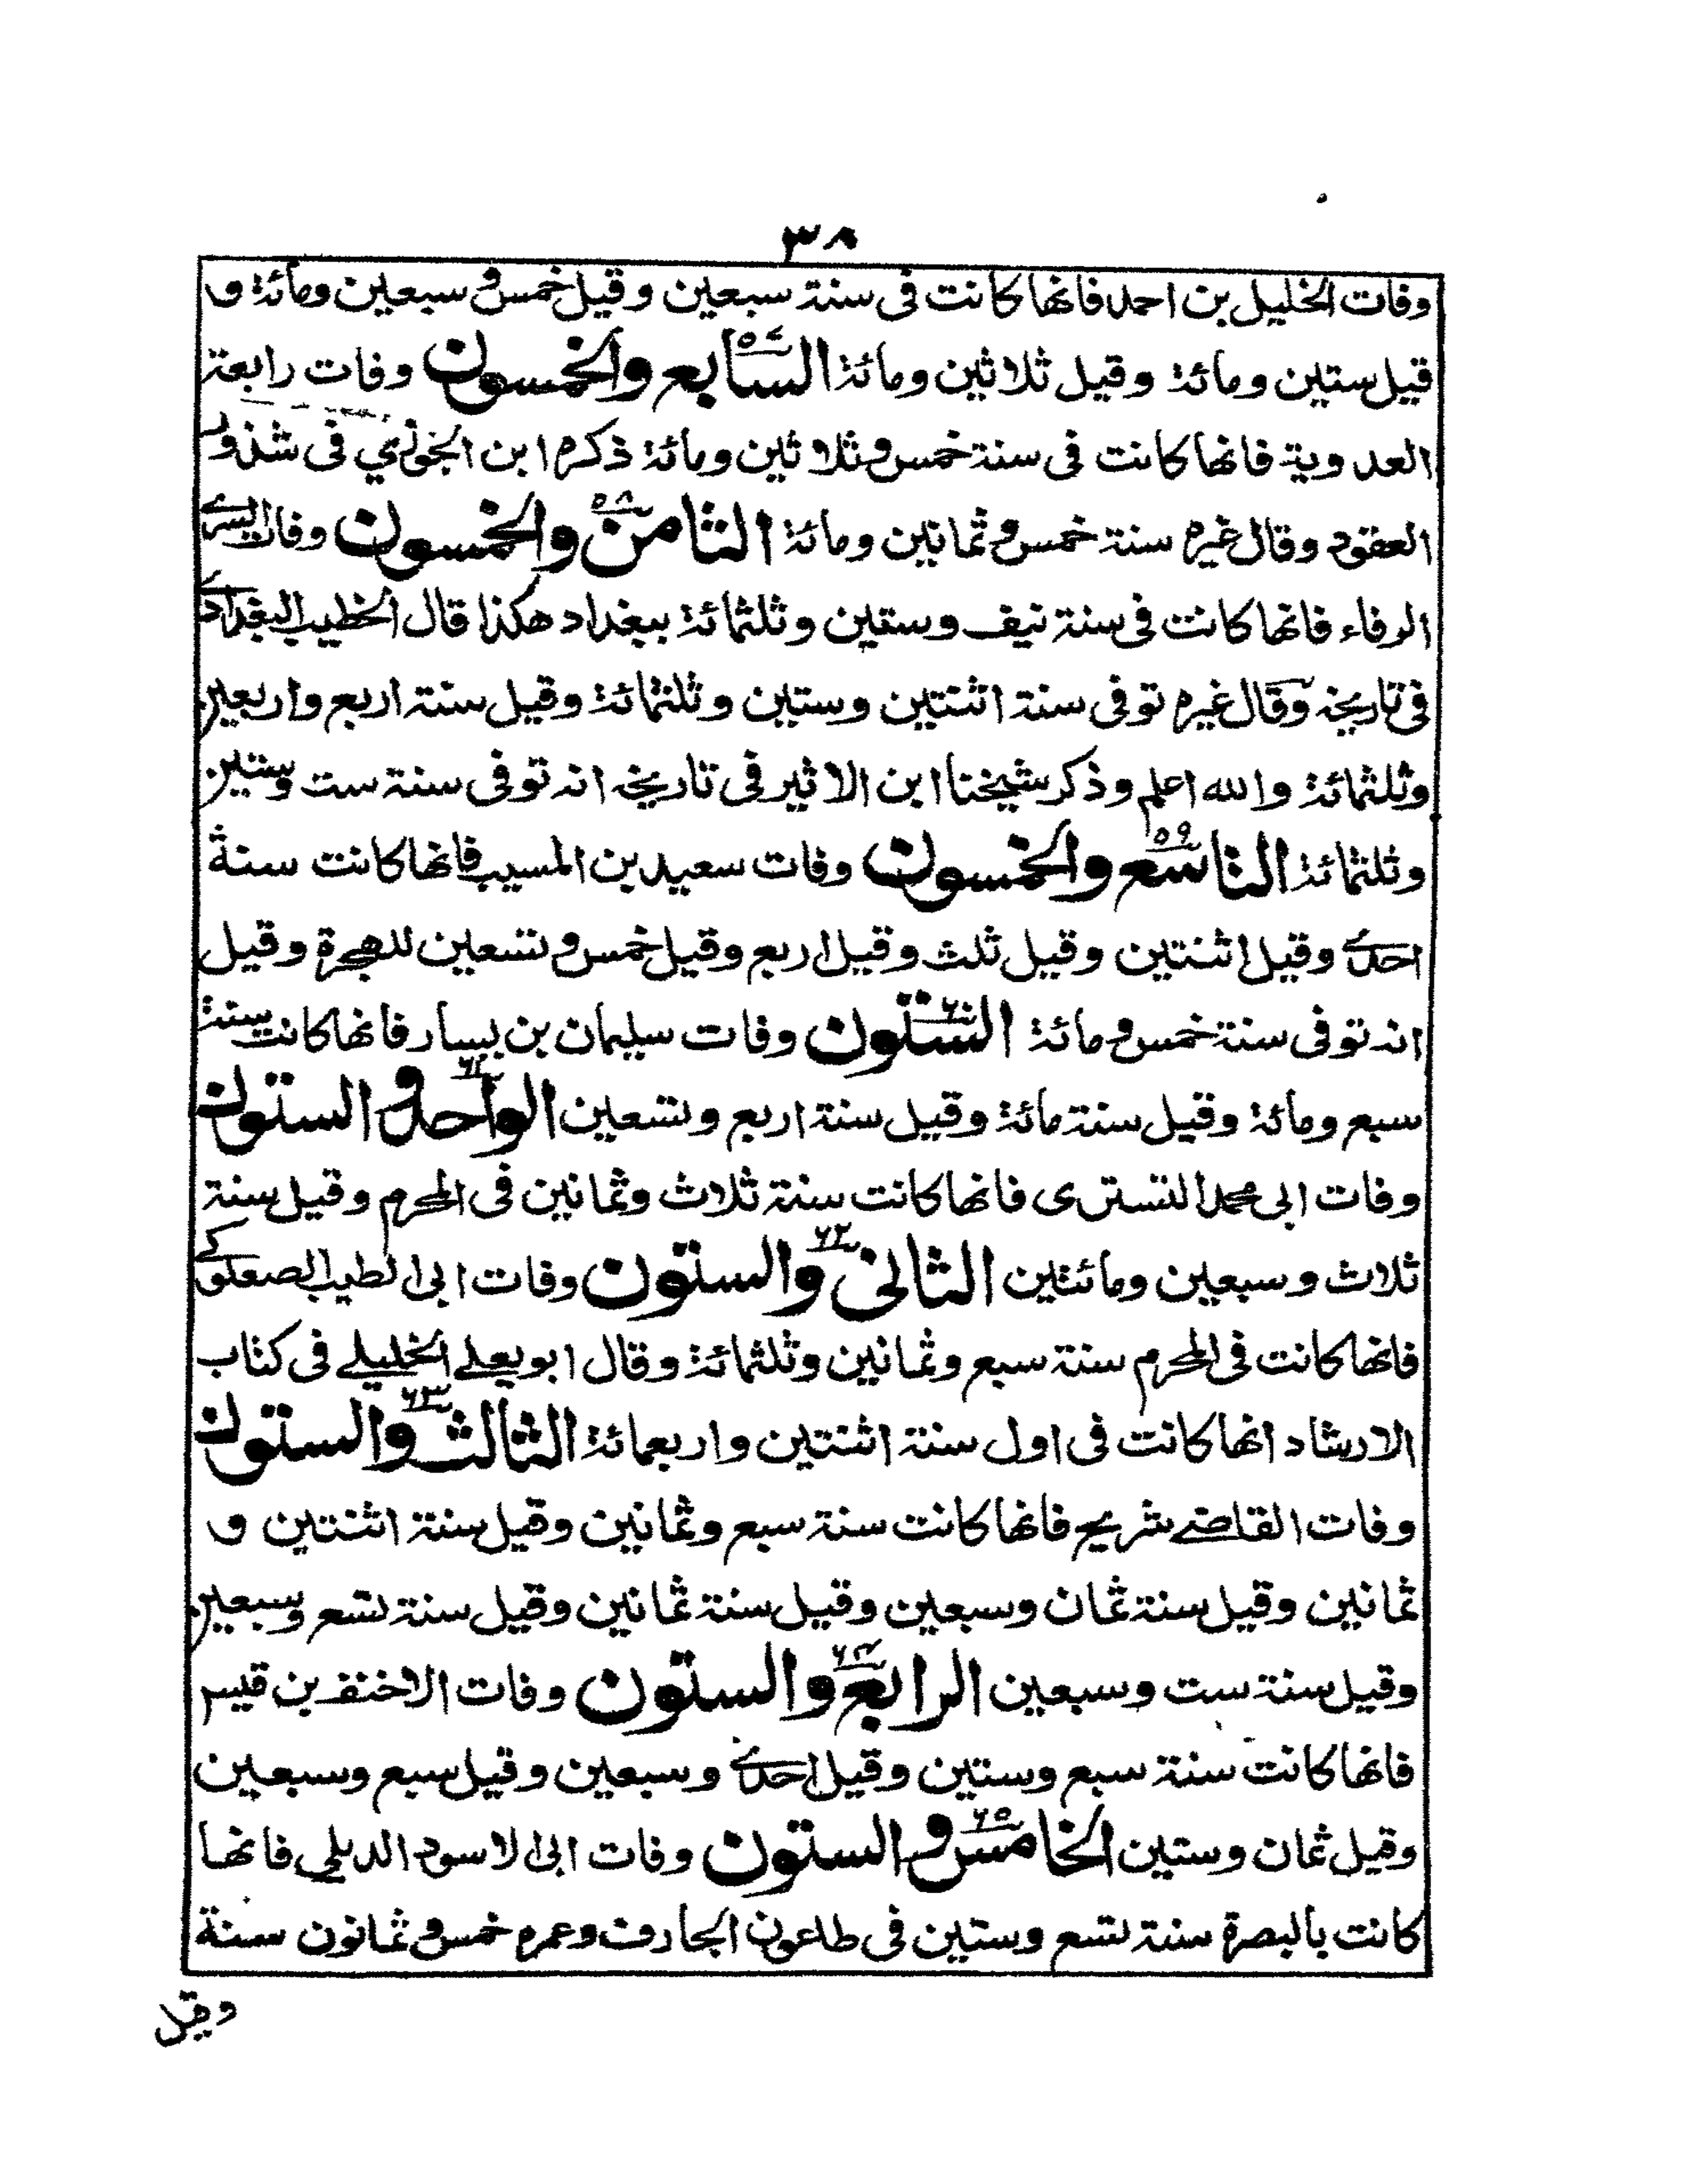 ٣٨
وفات الخليل بن احمد فانها كانت فى سنة سبعين وقيل خمس و سبعين ومائة و
قيل ستين ومائة وقيل ثلاثين ومائة السابع والخمسون ٥٧ وفات رابعة
العدوية فانها كانت فى سنة خمس وثلاثين ومائة ذكره ابن الجوزي فى شذور
العقود وقال غيره سنة خمس و ثمانين ومائة الثامن والخمسون ٥٨ وفات السرے
الرفاء فانها كانت فى سنة نيف وستين وثلثمائة ببغداد هكذا قال الخطيب البغدادے
فى تاريخه وقال غيره توفى سنة اثنتين وستين وثلثمائة وقيل سنة اربع واربعين
وثلثمائة والله اعلم وذكر شيخنا ابن الاثير فى تاريخه انه توفى سنة ست وستين
وثلثمائة التاسع والخمسون ٥٩ وفات سعيد بن المسيب فانها كانت سنة
احدے وقيل اثنتين وقيل ثلث وقيل اربع وقيل خمس و تسعين للهجرة وقيل
انه توفى سنة خمس و مائة الستون ٦٠ وفات سليمان بن يسار فانها كانت سنة
سبع ومائة وقيل سنة مائة وقيل سنة اربع وتسعين الواحد و الستون ٦١
وفات ابى محمد التسترى فانها كانت سنة ثلاث وثمانين فى المحرم وقيل سنة
ثلاث وسبعين ومائتين الثانى والستون ٦٢ وفات ابى الطيب الصعلوكے
فانها كانت فى المحرم سنة سبع وثمانين وثلثمائة وقال ابو يعلے الخليلے فى كتاب
الارشاد انها كانت فى اول سنة اثنتين واربعمائة الثالث والستون ٦٣
وفات القاضے شريح فانها كانت سنة سبع وثمانين وقيل سنة اثنتين و
ثمانين وقيل سنة ثمان وسبعين وقيل سنة ثمانين وقيل سنة تسع وسبعين
وقيل سنة ست وسبعين الرابع والستون ٦٤ وفات الاحنف بن قيس
فانها كانت سنة سبع وستين وقيل احدے وسبعين وقيل سبع وسبعين
وقيل ثمان وستين الخامس و الستون ٦٥ وفات ابى الاسود الديلى فانها
كانت بالبصرة سنة تسع وستين فى طاعون الجارف وعمره خمس و ثمانون سنة
وقيل